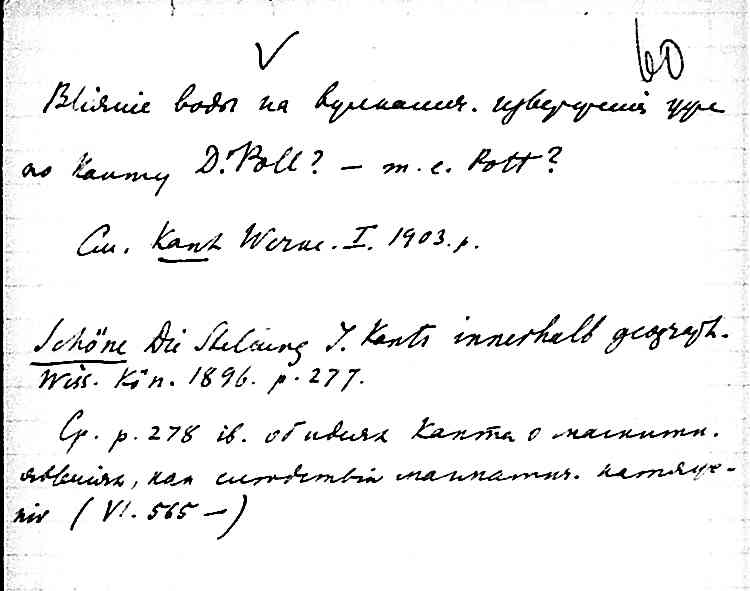 60
Вліяніе воды на вулканич. изверженія уже
по Канту D. Poll? — т. е. Pott?
См. Kant Werke. I. 1903. p.
Schöne Die Stellung I. Kants innerhalb geograph.
Wiss. Kön. 1896. p. 277.
Ср. p. 278 ib. об идеях Канта о магнитн.
явленіях, как следствіи
(VI. 565 —)